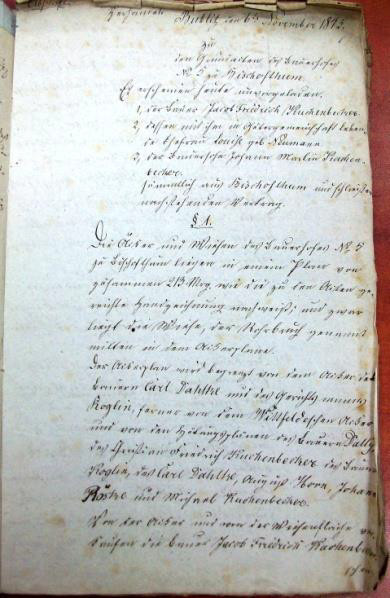 Verhandelt Bublitz den 6t November 1873.
zu
den Grundacten des Bauerhofes
No 5 zu Bischofthum.
Es erscheinen heute unvorgeladen.
1, der Bauer Jacob Friedrich Kuchenbecker
2, dessen mit ihm in Gütergemeinschaft leben-
de Ehefrau Louise geb Naumann
3, der Johann Martin Kuchen-
becker.
sämmtlich aus Bischofthum und schließen
nachstehenden Vertrag.
§ 1.
Die Äcker und Wiesen des Bauerhofes No 5
zu Bischofthum liegen in einem Plan von
zusammen 213 Mrg. wie die zu den Acten ge-
reichte Handzeichnung nachweist; und zwar
liegt die Wiese, der Rohrbruch genannt
mitten in dem Ackerplane.
Der Ackerplan wird begrenzt von dem Acker des
Bauern Carl Dahlke und des Gerichtsmanns
Koglin, ferner von dem Acker
und von den Hütungsplänen des Bauern
des Christian Friedrich Kuchenbecker des Bauern
Koglin, des Carl Dahlke, August Horn, Johann
und Michael Kuchenbecker.
Von der Acker und von der Wiesenfläche ver-
kaufen die Bauer Jacob Friedrich Kuchenbecker
schen